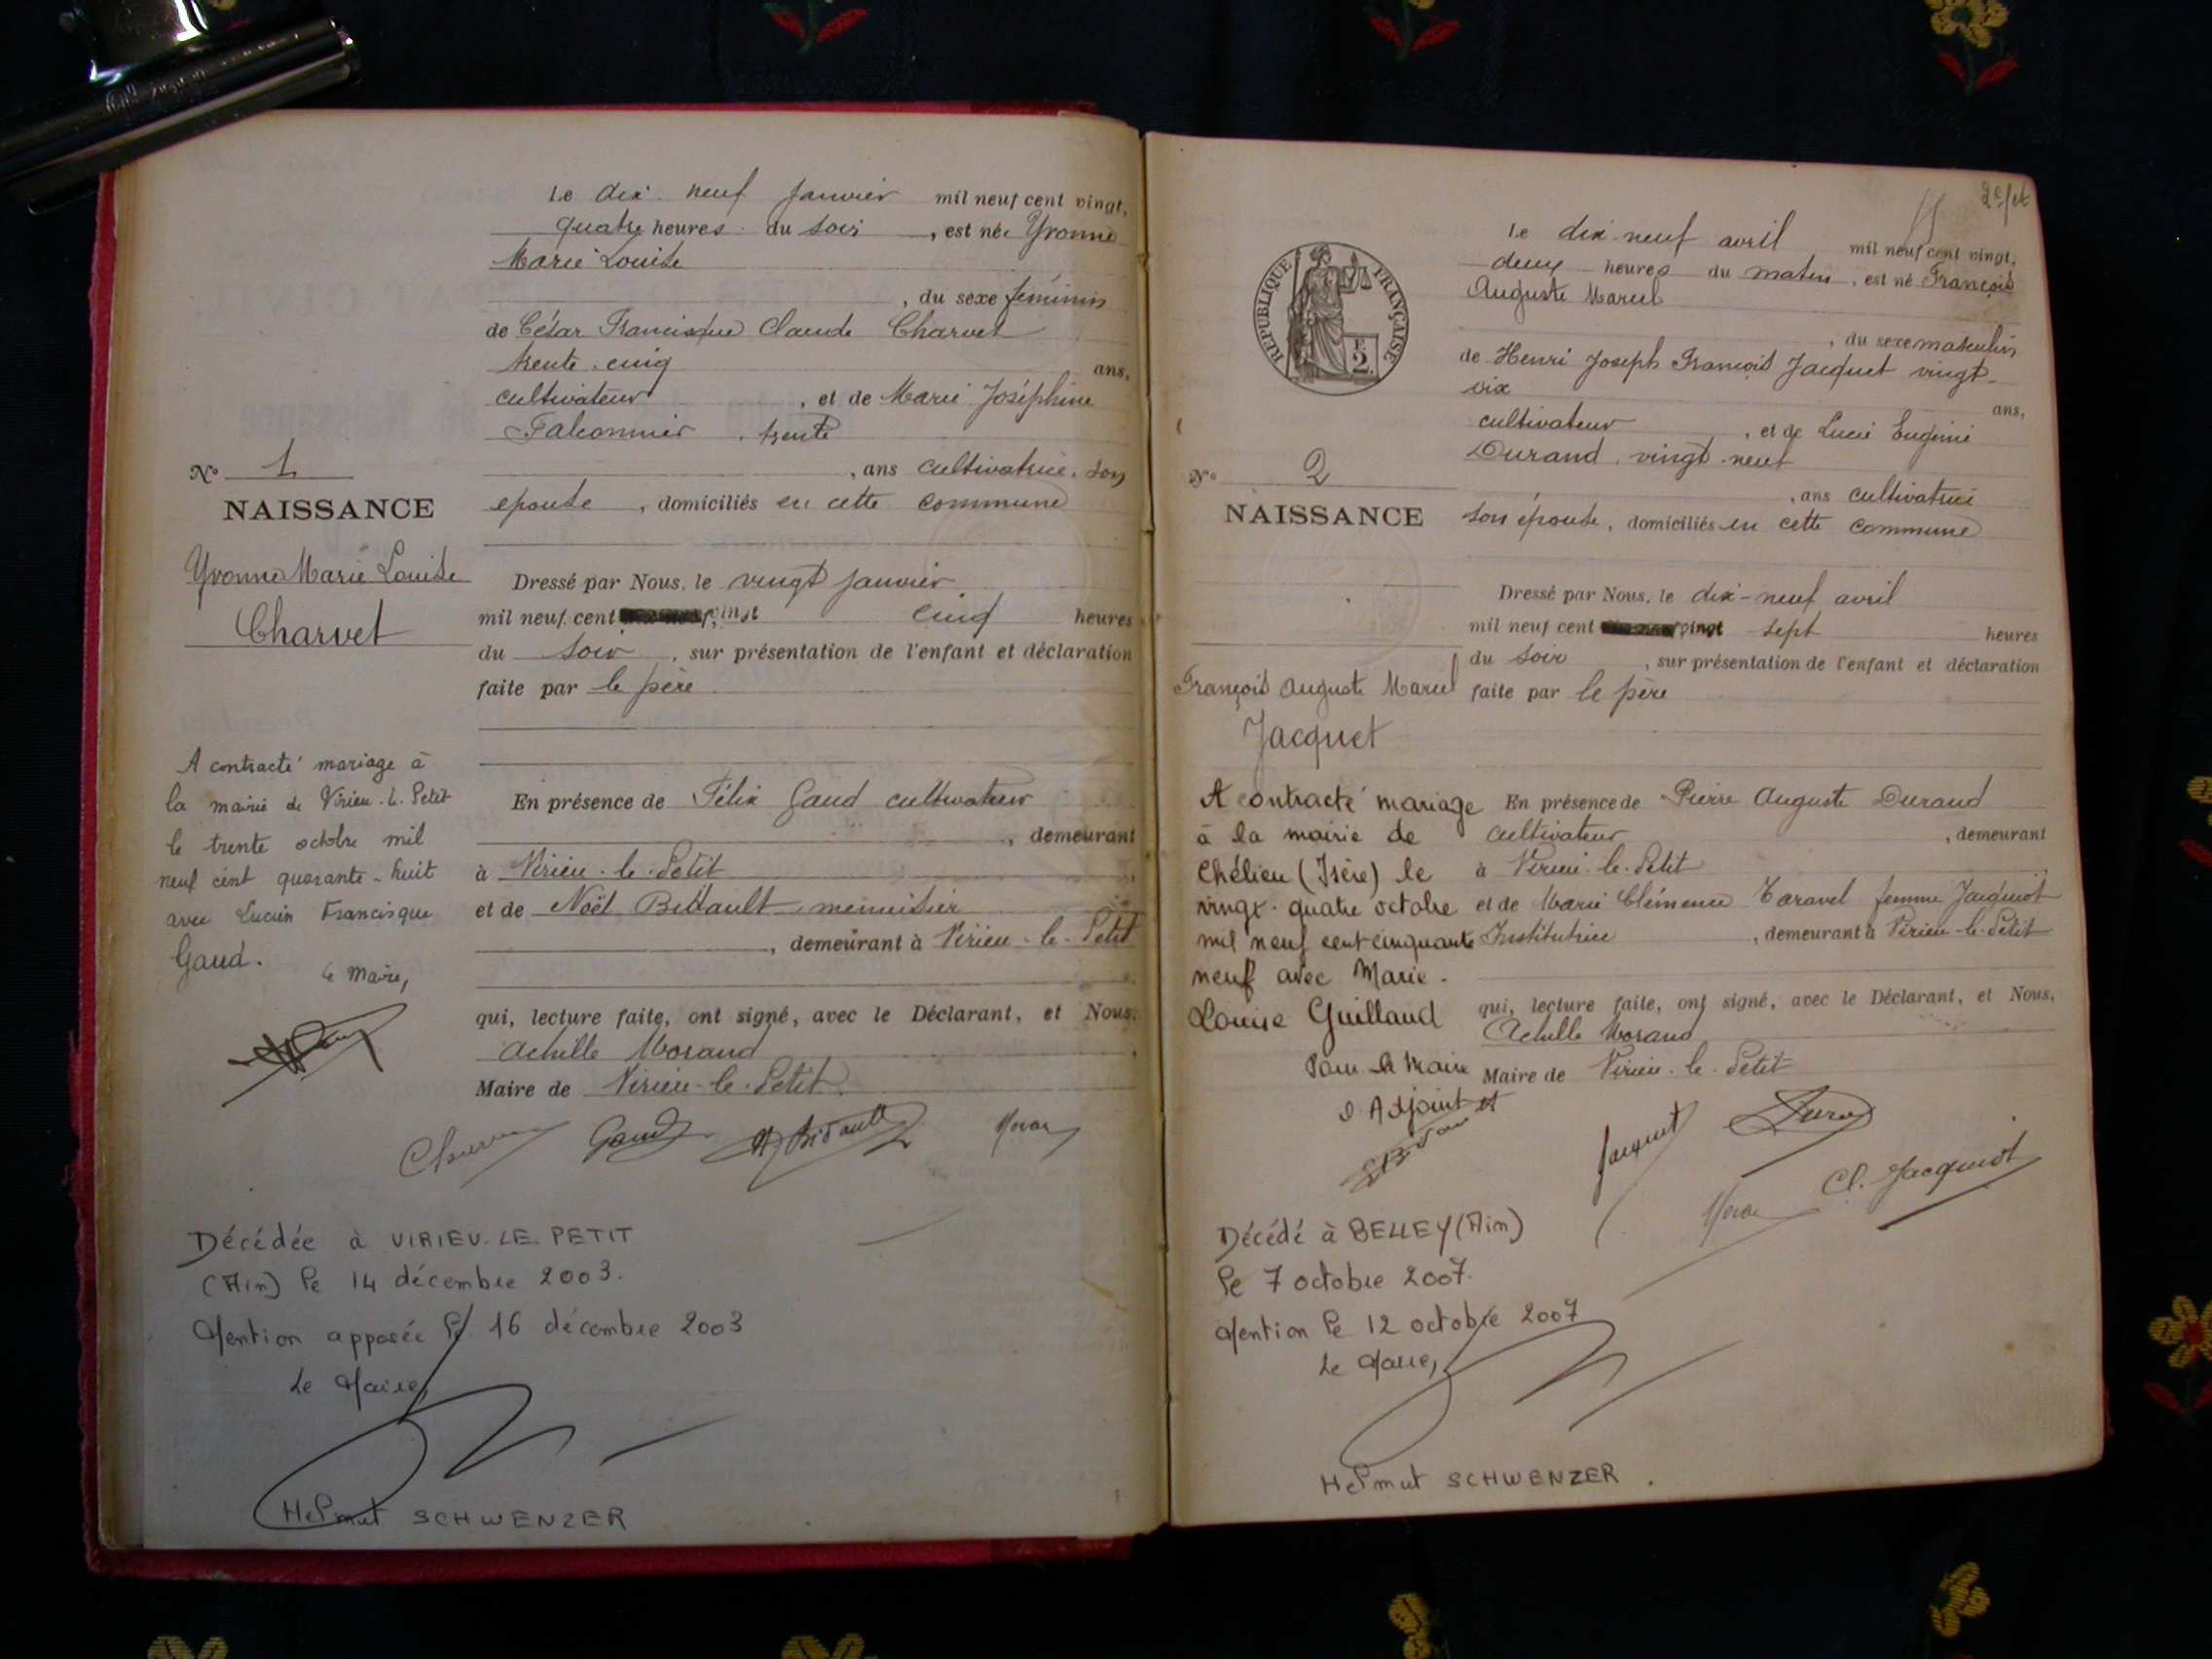 Le dix-neuf Janvier mil neuf cent vingt,
quatre heures du soir, est née Yvonne
Marie Louise
, du sexe féminin
de César Francisque Claude Charvet
trente-cinq ans,
cultivateur, et de Marie Joséphine
Falconnier, trente
, ans cultivatrice, son
épouse, domiciliés en cette commune
N° 1
NAISSANCE
Yvonne Marie Louise
Charvet
Dressé par Nous, le vingt janvier
mil neuf cent vingt cinq heures
du soir, sur présentation de l'enfant et déclaration
faite par le père
A contracté mariage à
la mairie de Virieu-le-Petit
le trente octobre mil
neuf cent quarante-huit
avec Lucien Francisque
Gaud.
Le Maire,
En présence de Félix Gaud cultivateur
, demeurant
à Virieu-le-Petit
et de Noël Bidault menuisier
, demeurant à Virieu-le-Petit
qui, lecture faite, ont signé, avec le Déclarant, et Nous,
Achille Morand
Maire de Virieu-le-Petit.
Gaud
Décédée à VIRIEU-LE-PETIT
(Ain) le 14 décembre 2003.
Mention apposée le 16 décembre 2003
Le Maire,
Helmut SCHWENZER
2e fet
RÉPUBLIQUE FRANÇAISE
2
Le dix-neuf avril mil neuf cent vingt,
deux heures du matin, est né François
Auguste Marcel
, du sexe masculin
de Henri Joseph François Jacquet vingt-
six ans,
cultivateur, et de Lucie Eugénie
Durand, vingt-neuf
, ans cultivatrice
son épouse, domiciliés en cette commune
N° 2
NAISSANCE
François Auguste Marcel
Jacquet
Dressé par Nous, le dix-neuf avril
mil neuf cent vingt sept heures
du soir, sur présentation de l'enfant et déclaration
faite par le père
A contracté mariage
à la mairie de
Chélieu (Isère) le
vingt-quatre octobre
mil neuf cent cinquante
neuf avec Marie-
Louise Guillaud
Pour le Maire
l'Adjoint
En présence de Pierre Auguste Durand
cultivateur, demeurant
à Virieu-le-Petit
et de Marie Clémence Taravel femme Jacquiot
Institutrice, demeurant à Virieu-le-Petit
qui, lecture faite, ont signé, avec le Déclarant, et Nous,
Achille Morand
Maire de Virieu-le-Petit
Jacquet
Cl. Jacquiot
Décédé à BELLEY (Ain)
le 7 octobre 2007.
Mention le 12 octobre 2007
Le Maire,
Helmut SCHWENZER.